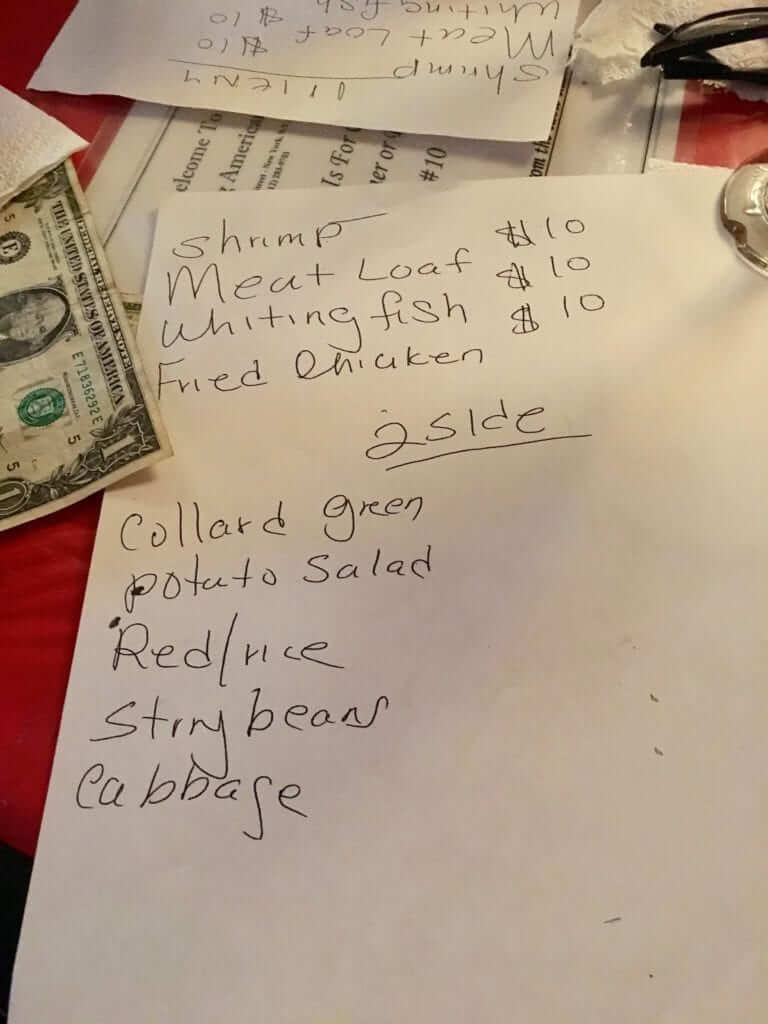 Shrimp
Meat Loaf $10
Whiting fish $10
elcome To
America
Is For
#10
om th
FEDERAL RESERVE NOTE
THE UNITED STATES OF AMERICA
E71836292 E
5
E
5
5
1
shrimp $10
Meat Loaf $10
Whiting fish $10
Fried Chicken
2 side
Collard green
potato Salad
Red/rice
String beans
Cabbage